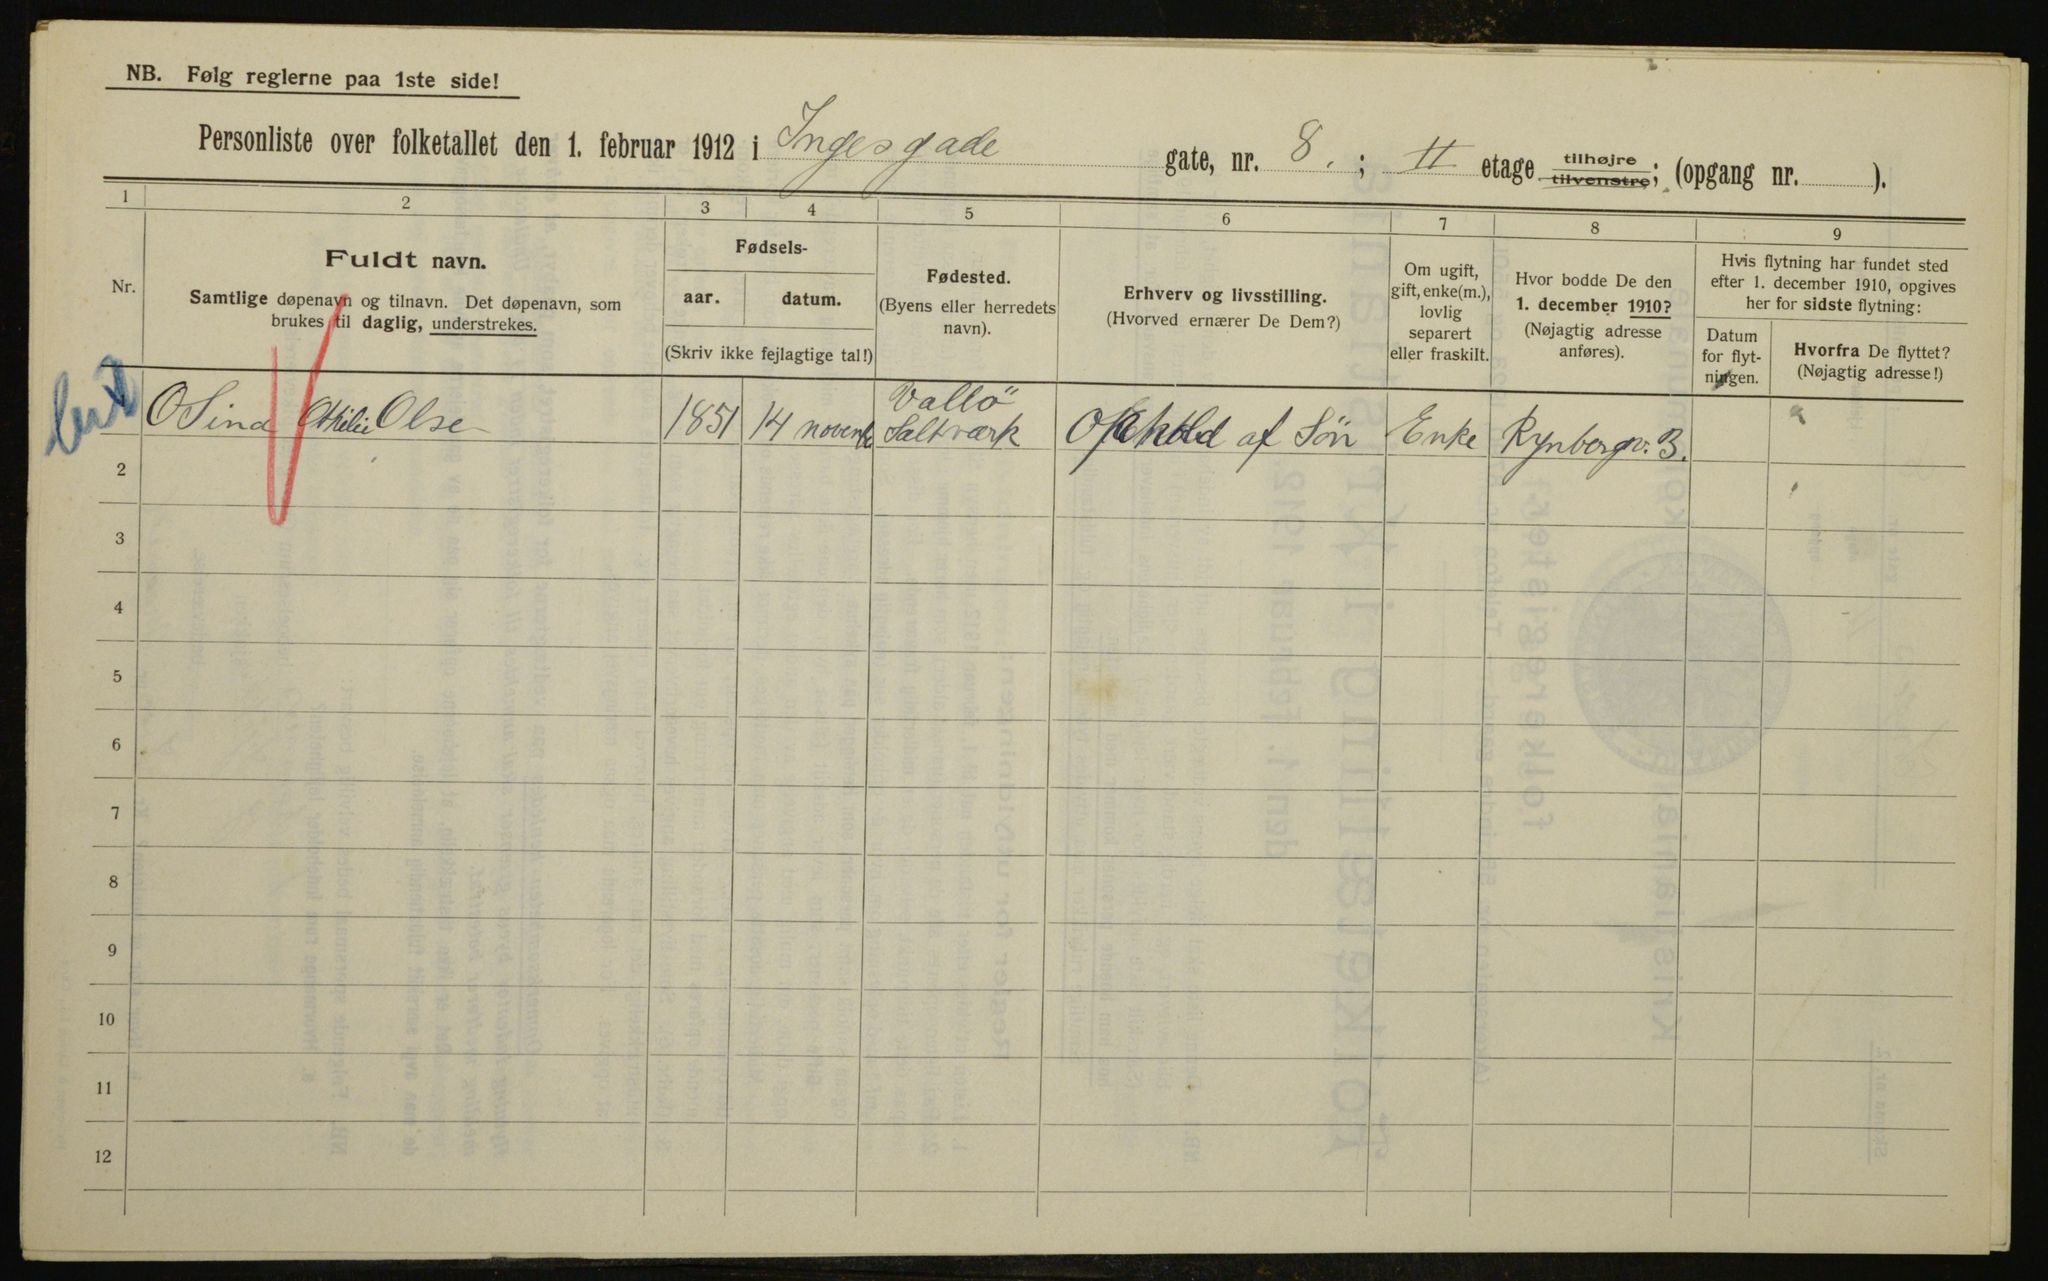 NB. Følg reglerne paa 1ste side!
Personliste over folketallet den 1. februar 1912 i Ingesgade gate, nr. 8. ; II etage tilhøjre tilvenstre; (opgang nr. ).
1 2 3 4 5 6 7 8 9
Nr.
Fuldt navn.
Samtlige døpenavn og tilnavn. Det døpenavn, som
brukes til daglig, understrekes.
Fødsels-
aar. datum.
(Skriv ikke fejlagtige tal!)
Fødested.
(Byens eller herredets
navn).
Erhverv og livsstilling.
(Hvorved ernærer De Dem?)
Om ugift,
gift, enke(m.),
lovlig
separert
eller fraskilt.
Hvor bodde De den
1. december 1910?
(Nøjagtig adresse
anføres).
Hvis flytning har fundet sted
efter 1. december 1910, opgives
her for sidste flytning:
Datum
for flyt-
ningen.
Hvorfra De flyttet?
(Nøjagtig adresse!)
OSina Othilie Olse 1851 14 novembe Vallö
Saltværk Opehold af Sön Enke Rynbergv. 3.
2
3
4
5
6
7
8
9
10
11
12